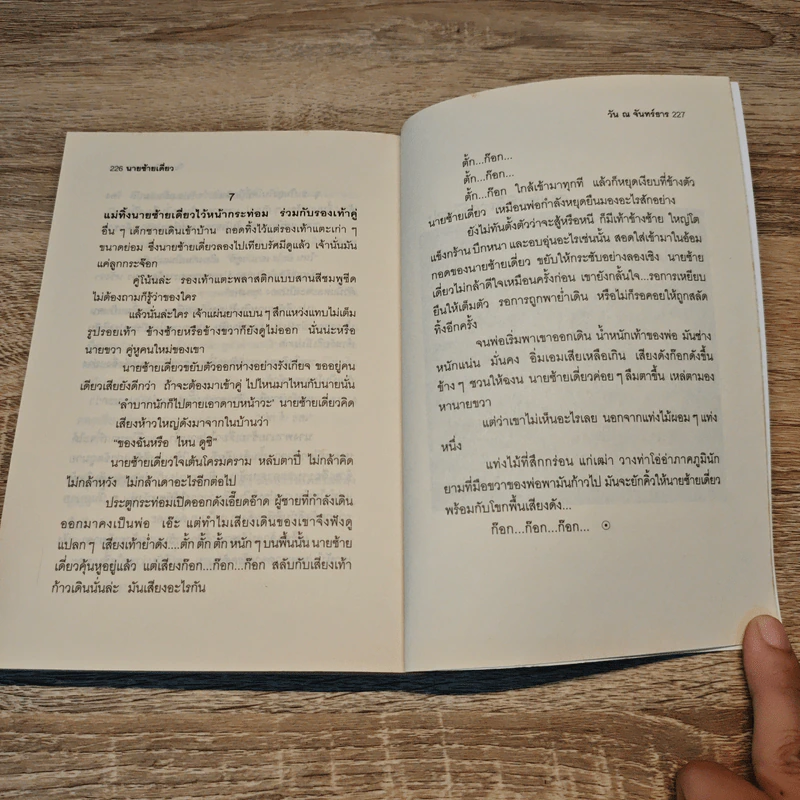 226 นายซ้ายเดียว
7
แม่ทิ้งนายซ้ายเดียวไว้หน้ากระท่อม ร่วมกับรองเท้าคู่
อื่น ๆ เด็กชายเดินเข้าบ้าน ถอดทิ้งไว้แต่รองเท้าแตะเก่า ๆ
ขนาดย่อม ซึ่งนายซ้ายเดียวลองไปเทียบรัศมีดูแล้ว เจ้านั่นมัน
แค่ลูกกระจ๊อก
คู่โน้นล่ะ รองเท้าแตะพลาสติกแบบสานสีชมพูซีด
ไม่ต้องถามก็รู้ว่าของใคร
แล้วนั่นล่ะใคร เจ้าแผ่นยางแบน ๆ สึกแหว่งแทบไม่เต็ม
รูปรอยเท้า ข้างซ้ายหรือข้างขวาก็ยังดูไม่ออก นั่นน่ะหรือ
นายขวา คู่หูคนใหม่ของเขา
นายซ้ายเดียวขยับตัวออกห่างอย่างรังเกียจ ขออยู่คน
เดียวเสียยังดีกว่า ถ้าจะต้องมาเข้าคู่ ไปไหนมาไหนกับนายนั่น
'ลำบากนักก็ไปตายเอาดาบหน้าวะ' นายซ้ายเดียวคิด
เสียงห้าวใหญ่ดังมาจากในบ้านว่า
"ของฉันหรือ ไหน ดูซิ"
นายซ้ายเดียวใจเต้นโครมคราม หลับตาปี๋ ไม่กล้าคิด
ไม่กล้าหวัง ไม่กล้าเดาอะไรอีกต่อไป
ประตูกระท่อมเปิดออกดังเอี๊ยดอ๊าด ผู้ชายที่กำลังเดิน
ออกมาคงเป็นพ่อ เอ๊ะ แต่ทำไมเสียงเดินของเขาจึงฟังดู
แปลก ๆ เสียงเท้าย่ำดัง....ตั้ก ตั้ก ตั้ก หนัก ๆ บนพื้นนั้น นายซ้าย
เดียวคุ้นหูอยู่แล้ว แต่เสียงก๊อก...ก๊อก...ก๊อก สลับกับเสียงเท้า
ก้าวเดินนั่นล่ะ มันเสียงอะไรกัน
วัน ณ จันทร์ธาร 227
ตั้ก...ก๊อก...
ตั้ก...ก๊อก...
ตั้ก...ก๊อก ใกล้เข้ามาทุกที แล้วก็หยุดเงียบที่ข้างตัว
นายซ้ายเดียว เหมือนพ่อกำลังหยุดยืนมองอะไรสักอย่าง
ยังไม่ทันตั้งตัวว่าจะสู้หรือหนี ก็มีเท้าข้างซ้าย ใหญ่โต
แข็งกร้าน ปึกหนา และอบอุ่นอะไรเช่นนั้น สอดใส่เข้ามาในอ้อม
กอดของนายซ้ายเดียว ขยับให้กระชับอย่างลองเชิง นายซ้าย
เดียวไม่กล้าดีใจเหมือนครั้งก่อน เขายังกลั้นใจ...รอการเหยียบ
ยืนให้เต็มตัว รอการถูกพาย่ำเดิน หรือไม่ก็รอคอยให้ถูกสลัด
ทิ้งอีกครั้ง
จนพ่อเริ่มพาเขาออกเดิน น้ำหนักเท้าของพ่อ มันช่าง
หนักแน่น มั่นคง อิ่มเอมเสียเหลือเกิน เสียงดังก๊อกดังขึ้น
ข้าง ๆ ชวนให้ฉงน นายซ้ายเดียวค่อย ๆ ลืมตาขึ้น เหล่ตามอง
หานายขวา
แต่ว่าเขาไม่เห็นอะไรเลย นอกจากแท่งไม้ผอม ๆ แท่ง
หนึ่ง
แท่งไม้ที่สึกกร่อน แก่เฒ่า วางท่าโอ่อ่าภาคภูมินัก
ยามที่มือขวาของพ่อพามันก้าวไป มันจะยักคิ้วให้นายซ้ายเดียว
พร้อมกับโขกพื้นเสียงดัง...
ก๊อก...ก๊อก...ก๊อก...